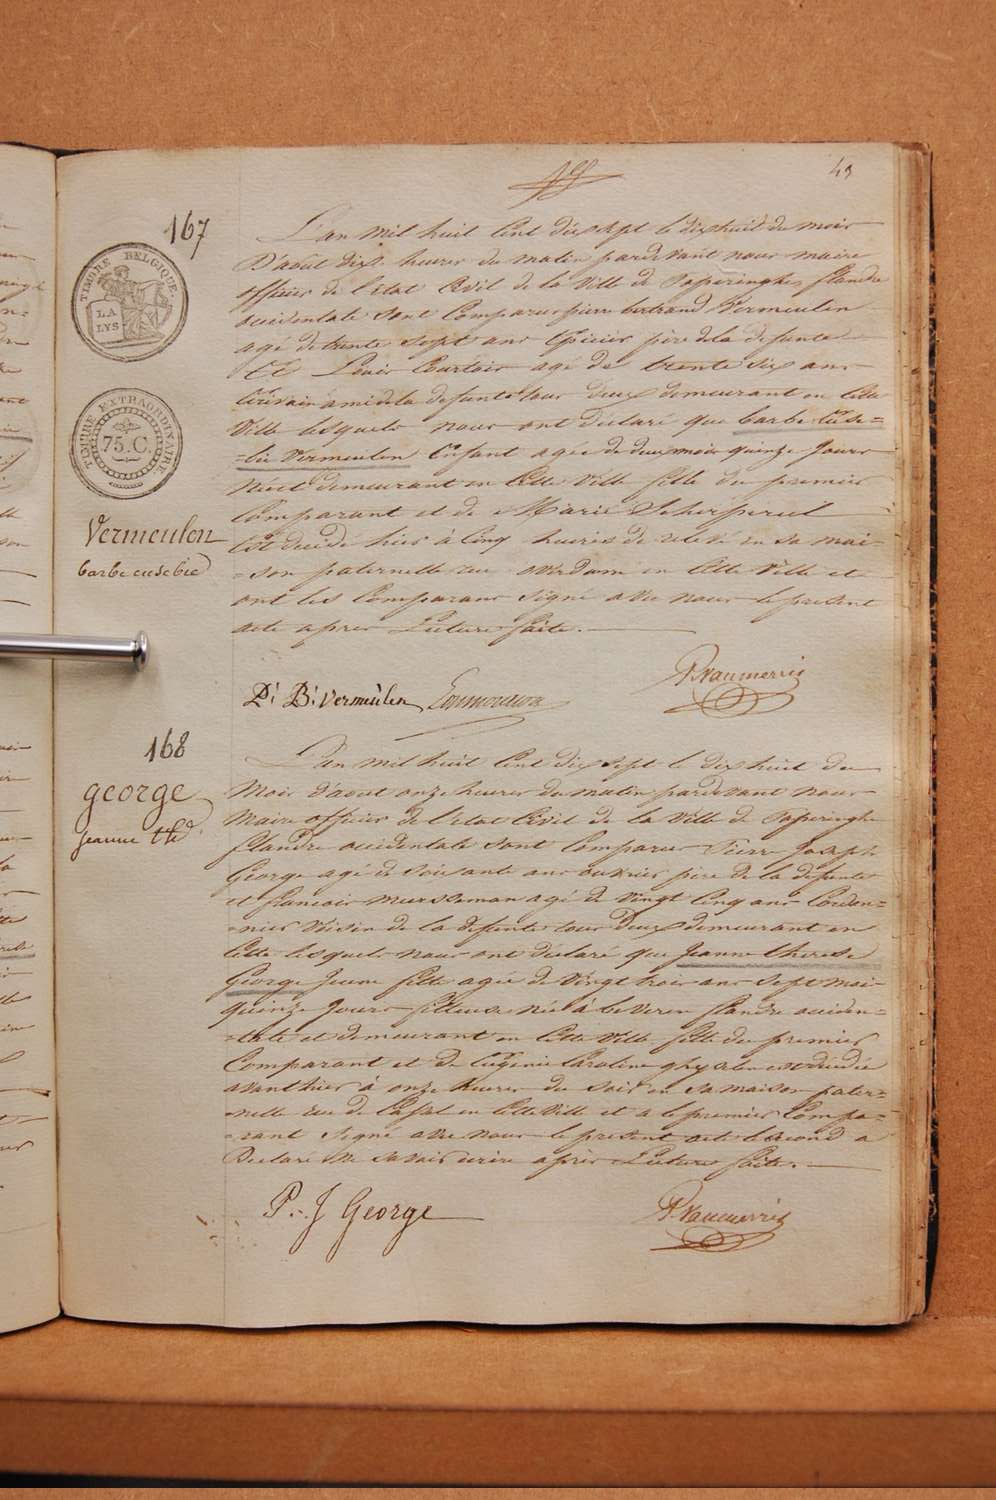 49
167
TIMBRE BELGIQUE.
LA
LYS
TIMBRE EXTRAORDINAIRE.
75.C.
Vermeulen
barbe eusebie
L'an mil huit Cent dix sept le dixhuit du mois
D'août dix heures du matin pardevant nous maire
officier de l'etat Civil de la Ville de Poperinghe flandre
occidentale sont Comparus pierre bertrand Vermeulen
agé de trente sept ans Epicier père de la defunte
Et Louis Courtois agé de trente six ans
Ecrivain ami de la defunte tous deux demeurant en cette
Ville lesquels nous ont déclaré que barbe Euse=
=bie Vermeulen Enfant agée de deux mois quinze Jours
Née et demeurant en Cette Ville fille du premier
Comparant et de Marie Scherpereel
Est decidé hier à Cinq heures de relevé en sa mai=
=son paternelle rue en Cette Ville et
ont les Comparans signé avec nous le present
acte après Lecture faite.
P: B: Vermeulen
P. Vanmerris
168
george
jeanne thé
L'an mil huit Cent dix sept le dixhuit du
Mois d'aout onze heures du matin pardevant nous
Maire officier de l'etat Civil de la Ville de Poperinghe
flandre occidentale sont Comparus Pierre Joseph
George agé de soixante ans ouvrier père de la defunte
et francois Musseman agé de vingt Cinq ans Cordon=
=nier Voisin de la defunte tous deux demeurant en
Cette lesquels nous ont déclaré que Jeanne therese
George Jeune fille agée de Vingt trois ans Sept mois
quinze Jours fileuse née à beveren flandre occiden=
=tale et demeurant en Cette Ville fille du premier
Comparant et de Eugenie Caroline ghyselen est décidée
avant hier à onze heures du soir en sa maison pater=
=nelle rue de Cassel en Cette Ville et a le premier Compa=
=rant signé avec nous le present acte le second a
Declaré Ne savoir ecrire après Lecture faite.
P. J George
P. Vanmerris